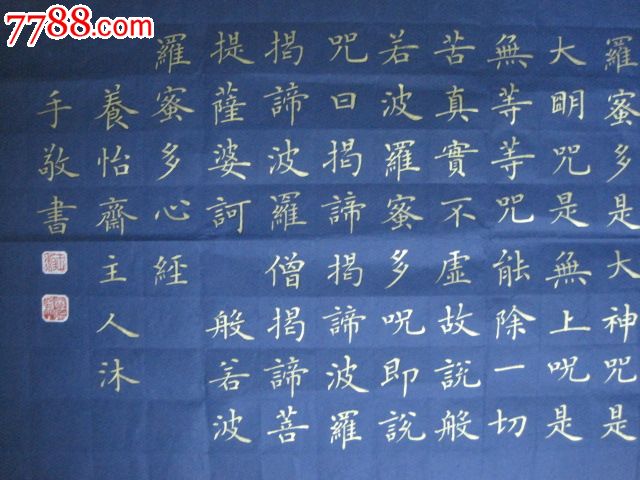 7788.com
羅蜜多是大神咒是
大明咒是無上呪是
無等等咒能除一切
苦真實不虛故說般
若波羅蜜多呪即說
咒曰揭諦揭諦波羅
揭諦波羅僧揭諦菩
提薩婆訶 般若波
羅蜜多心經
養怡齋主人沐
手敬書